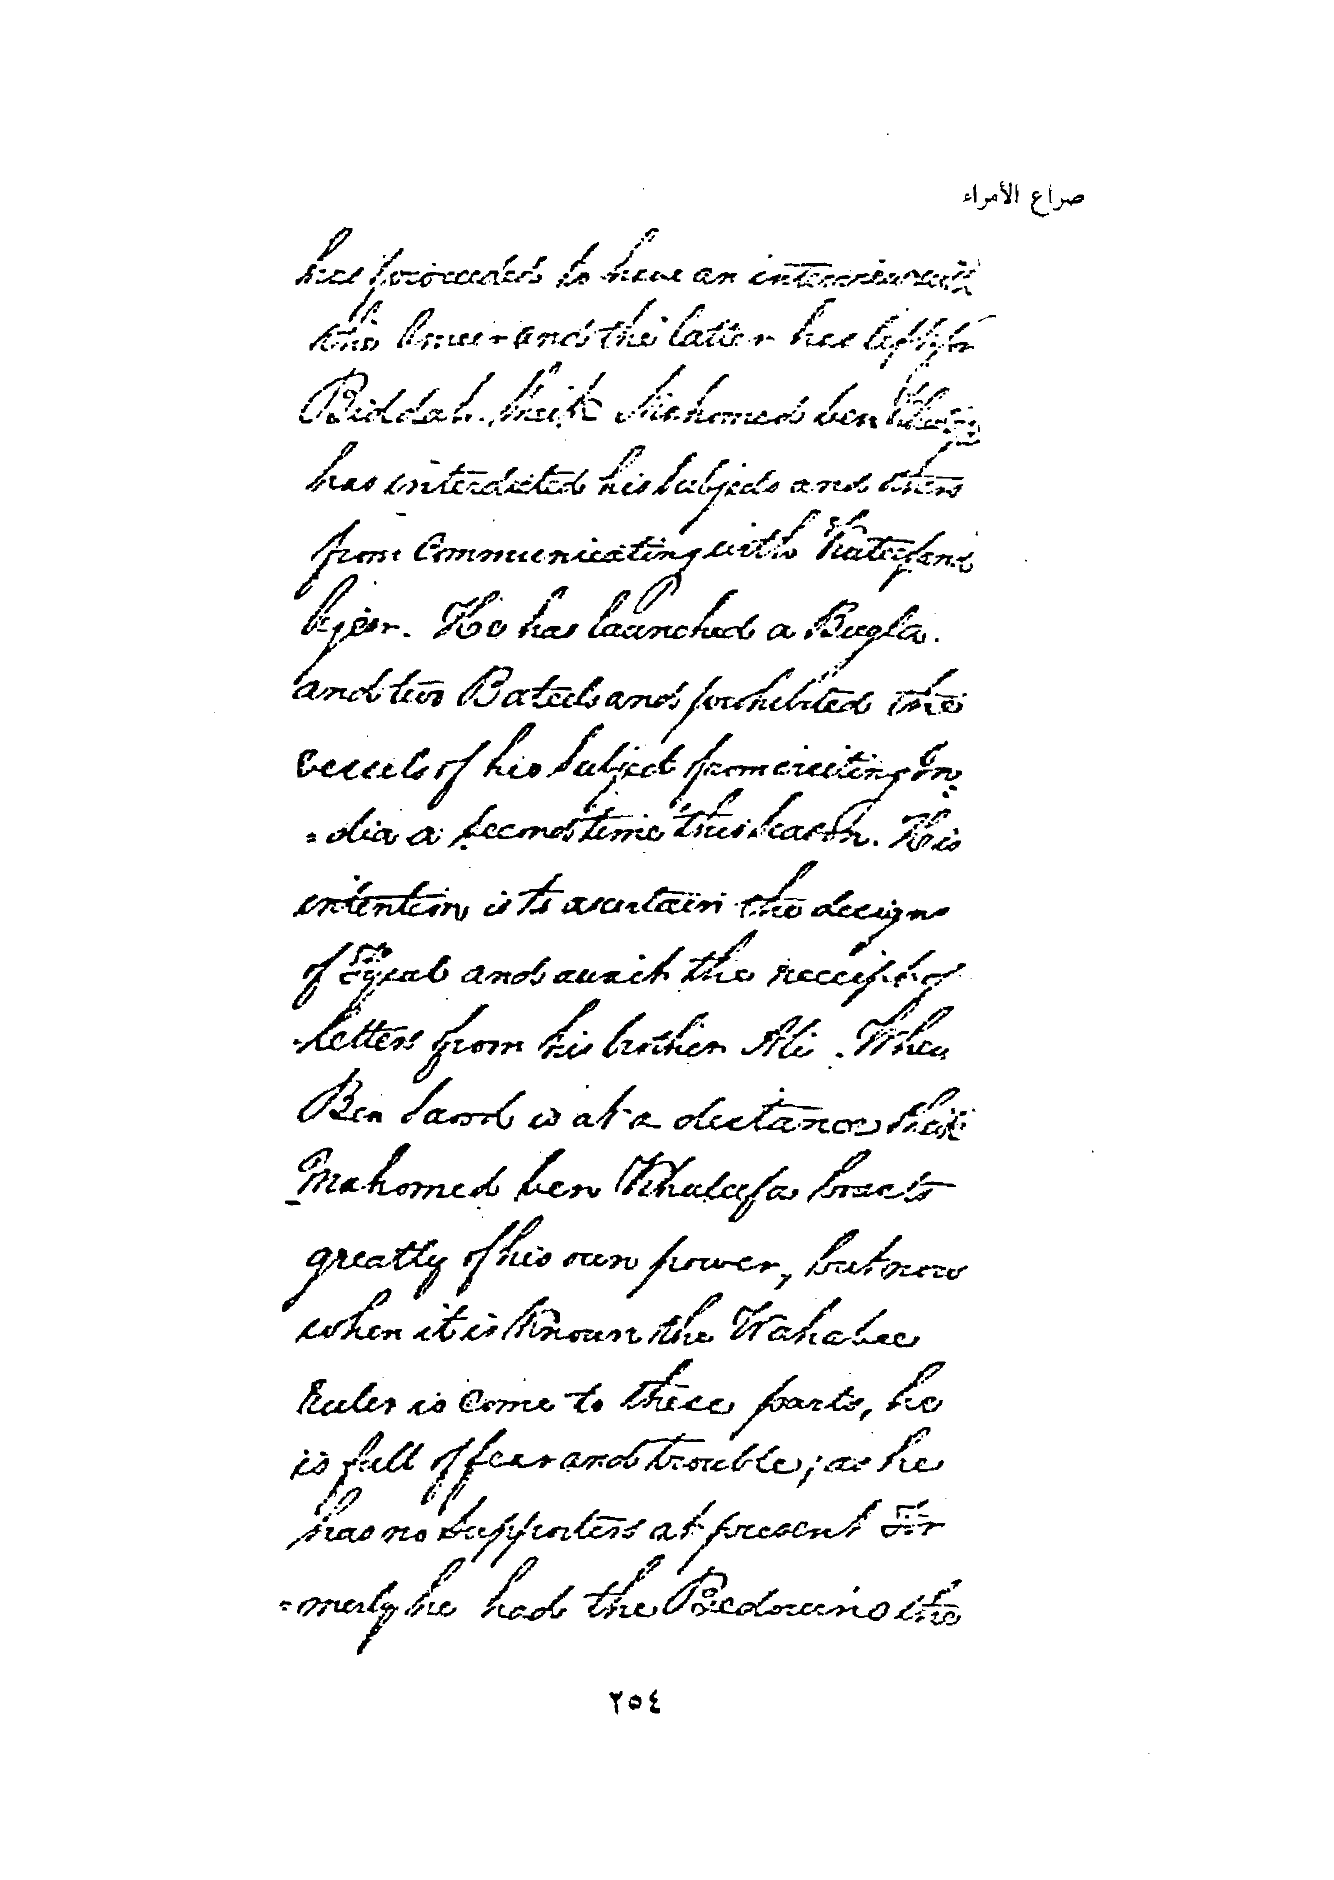 صراع الأمراء
has proceeded to have an interview with
the Ameer and the latter has left for
Biddah. Sheik Mahomed ben
has interdicted his Subjects and others
from Communicating with Kateef and
Ajeer. He has launched a Bugla.
and two Bateels and prohibited the
vessels of his Subject from visiting In
=dia a second time this season. His
intention is to ascertain the designs
of Fysal and await the receipt of
letters from his brother Ali. When
Ben Saood is at a distance Sheik
Mahomed ben Khaleefa boasts
greatly of his own power, but now
when it is Known the Wahabee
Ruler is come to these parts, he
is full of fear and trouble; as he
has no Supporters at present For
=merly he had the Bedouins the
٢٥٤